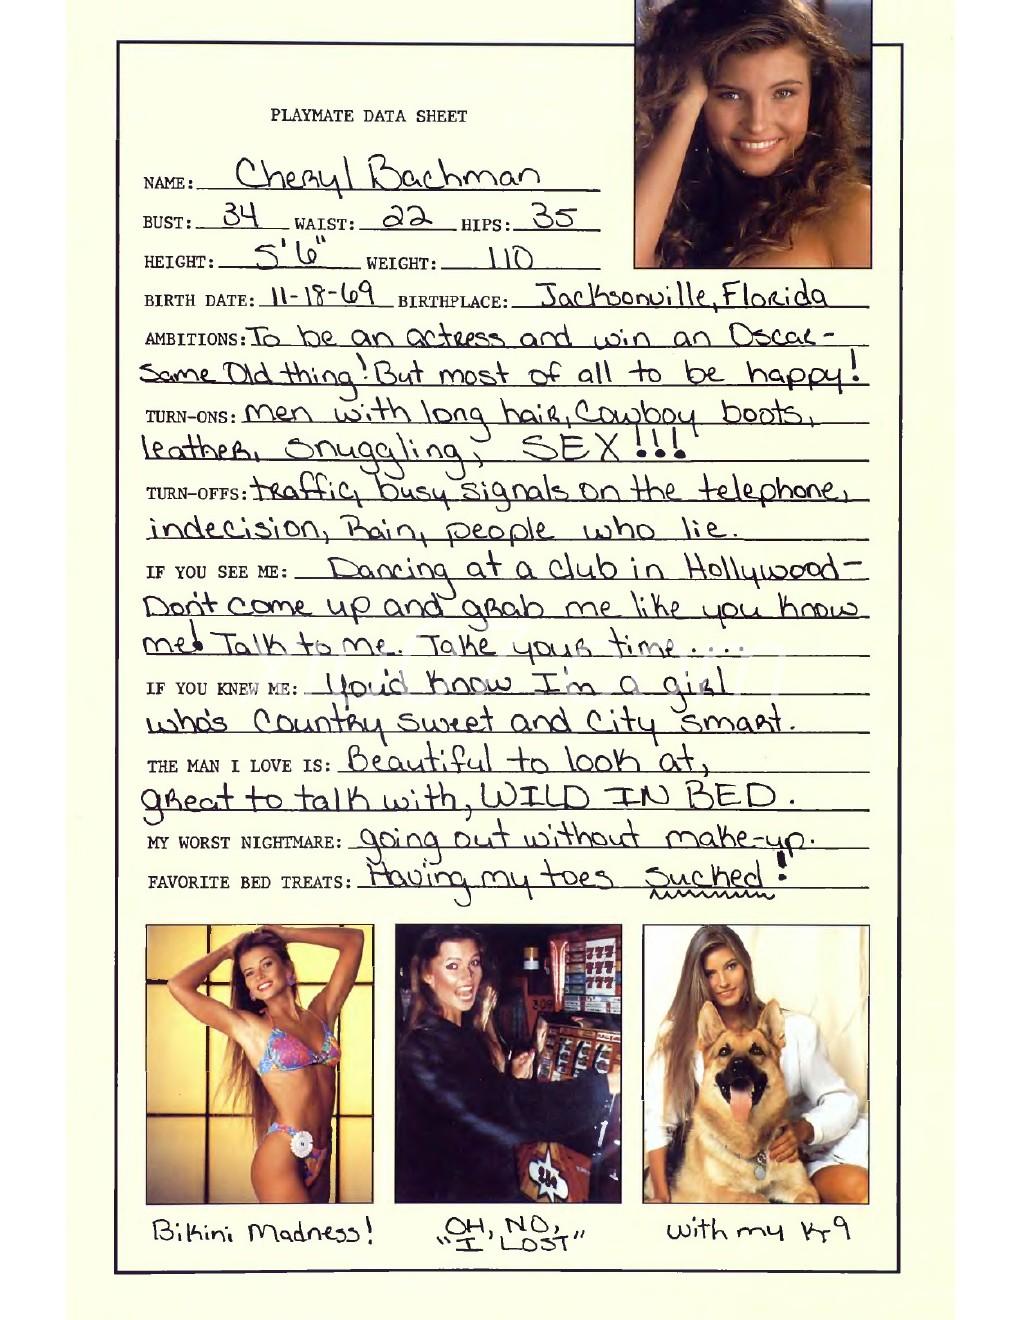 PLAYMATE DATA SHEET
NAME: Cheryl Bachman
BUST: 34 WAIST: 22 HIPS: 35
HEIGHT: 5'6" WEIGHT: 110
BIRTH DATE: 11-18-69 BIRTHPLACE: Jacksonville, Florida
AMBITIONS: To be an actress and win an Oscar-
Same Old thing! But most of all to be happy!
TURN-ONS: Men with long hair, Cowboy boots,
leather, snuggling, SEX!!!
TURN-OFFS: traffic, busy signals on the telephone,
indecision, Rain, people who lie.
IF YOU SEE ME: Dancing at a club in Hollywood-
Don't come up and grab me like you know
me! Talk to me. Take your time....
IF YOU KNEW ME: You'd know I'm a girl
who's Country sweet and City smart.
THE MAN I LOVE IS: Beautiful to look at,
great to talk with, WILD IN BED.
MY WORST NIGHTMARE: going out without make-up.
FAVORITE BED TREATS: Having my toes sucked!
309
777
777
777
284
Bikini Madness!
"OH, NO,
I LOST"
with my K-9